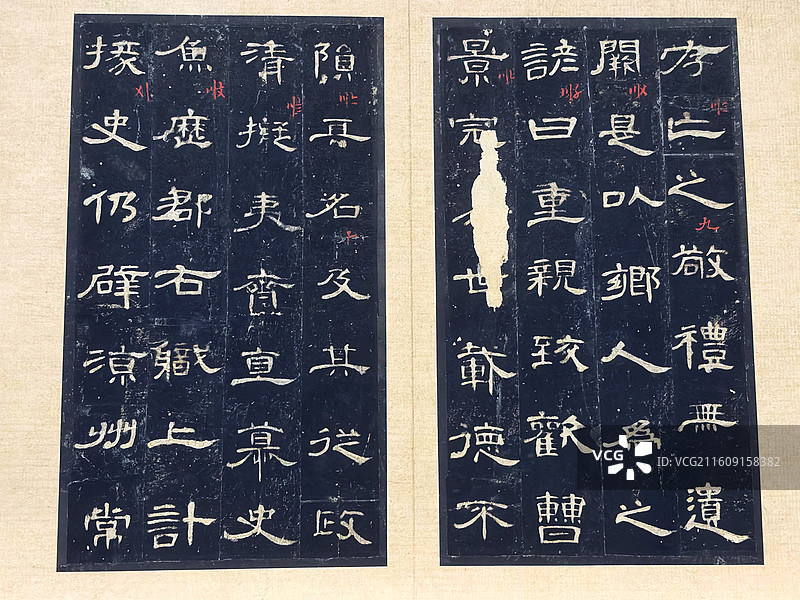 存亡之敬禮無遺
闕是以鄉人為之
諺曰重親致歡曹
景完世載德不
隕其名及其從政
清擬夷齊直慕史
魚歷郡右職上計
掾史仍辟涼州常
九
十
VCG
ID:VCG211609158382